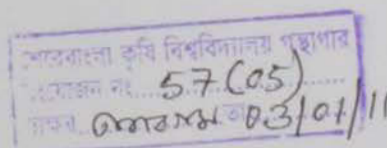 শেরেবাংলা কৃষি বিশ্ববিদ্যালয় গ্রন্থাগার
সংযোজন নং..... 57(05)
03/01/11